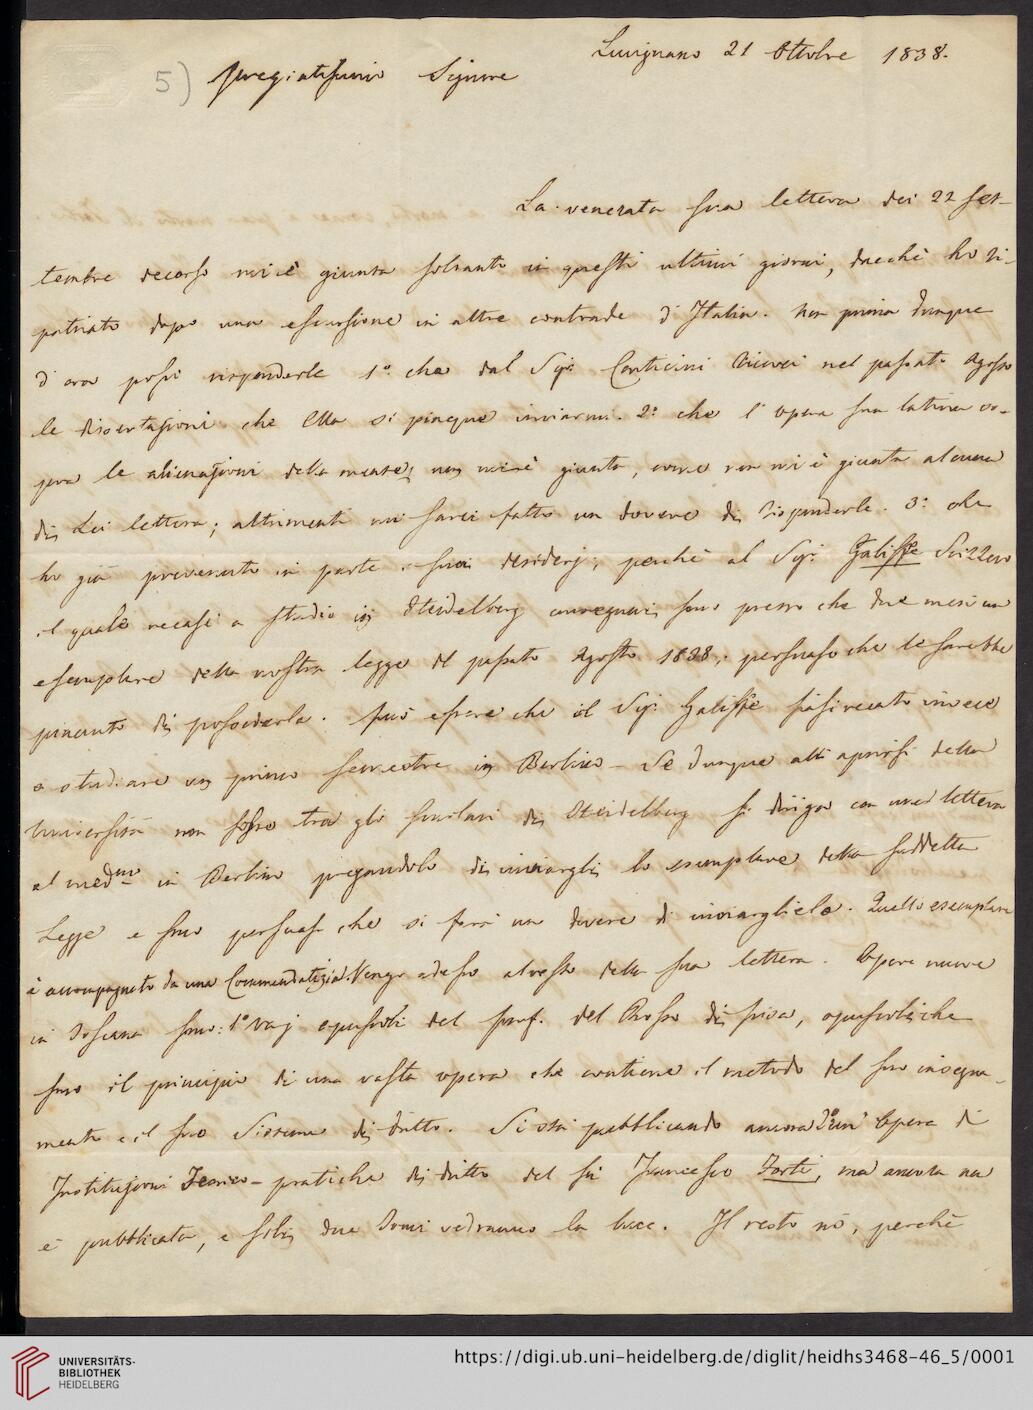 Lucignano 21 Ottobre 1838.
5) Pregiatissimo Signore
La venerata sua lettera dei 22 Set-
tembre decorso mi è giunta soltanto in questi ultimi giorni, dacchè ho ri-
patriato dopo una escursione in altre contrade d'Italia. Non prima dunque
d'ora posso risponderle 1°. che dal Sigr. Conticini ricevei nel passato Agosto
le dissertazioni che Ella si piacque inviarmi. 2°. che l'opera sua latina so-
pra le alienazioni della mente, non mi è giunta, come non mi è giunta alcuna
di Lei lettera; altrimenti mi sarei fatto un dovere di risponderle. 3°. che
ho già prevenuto in parte i suoi desiderj, perchè al Sigr. Galiffe Svizzero
il quale recasi a studio in Heidelberg consegnai, sono presso che due mesi un
esemplare della nostra legge del passato Agosto 1838, persuaso che le sarebbe
piaciuto di possederla. Può essere che il Sigr. Galiffe siasi recato invece
a studiare un primo semestre in Berlino - Se dunque all' aprirsi della
Università non fosse tra gli scolari di Heidelberg si diriga con una lettera
al medmo in Berlino pregandolo di inviargli lo esemplare della suddetta
Legge e sono persuaso che si farà un dovere di inviarglielo. Quello esemplare
è accompagnato da una Commendatizia. Vengo adesso al resto della sua lettera. Opere nuove
in Toscana sono: 1° varj opuscoli del Prof. Del Rosso di Pisa, opuscoli che
sono il principio di una vasta opera che contiene il metodo del suo insegna-
mento e il suo Sistema di dritto. Si sta pubblicando ancora 2° un' Opera di
Instituzioni Teorico-pratiche di dritto del fu Francesco Forti, ma ancora non
è pubblicata, e soli due Tomi vedranno la luce. Il resto nò, perchè
UNIVERSITÄTS-
BIBLIOTHEK
HEIDELBERG
https://digi.ub.uni-heidelberg.de/diglit/heidhs3468-46_5/0001